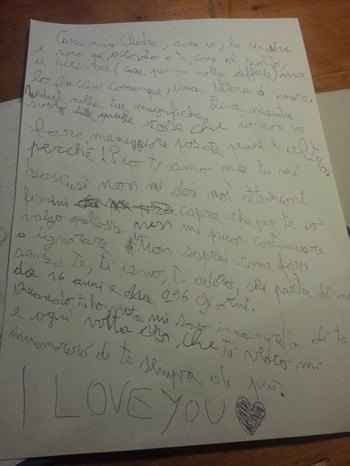 Cara mano Destra, sono io, la sinistra
e sono qui, accanto a te, come al solito
a scrivere (cosa per me molto difficile) ma
lo faccio comunque, una lettera d'amore.
nelle tue magnifiche linee mentre
quelle cose che io non so
fare, maneggiare posate penne e altro.
perché! Io ti amo ma tu mi
non mi dai mai attenzioni
fammi capire che per te io
valgo qualcosa non mi puoi continuare
a ignorare Non saprei come fare
senza te, ti amo, ti adoro, sei parte di me
da 16 anni e 296 giorni.
Quando ti ho mi sono innamorata di te
e ogni volta che ti vedo mi
innamoro di te sempre di più.
I LOVE YOU